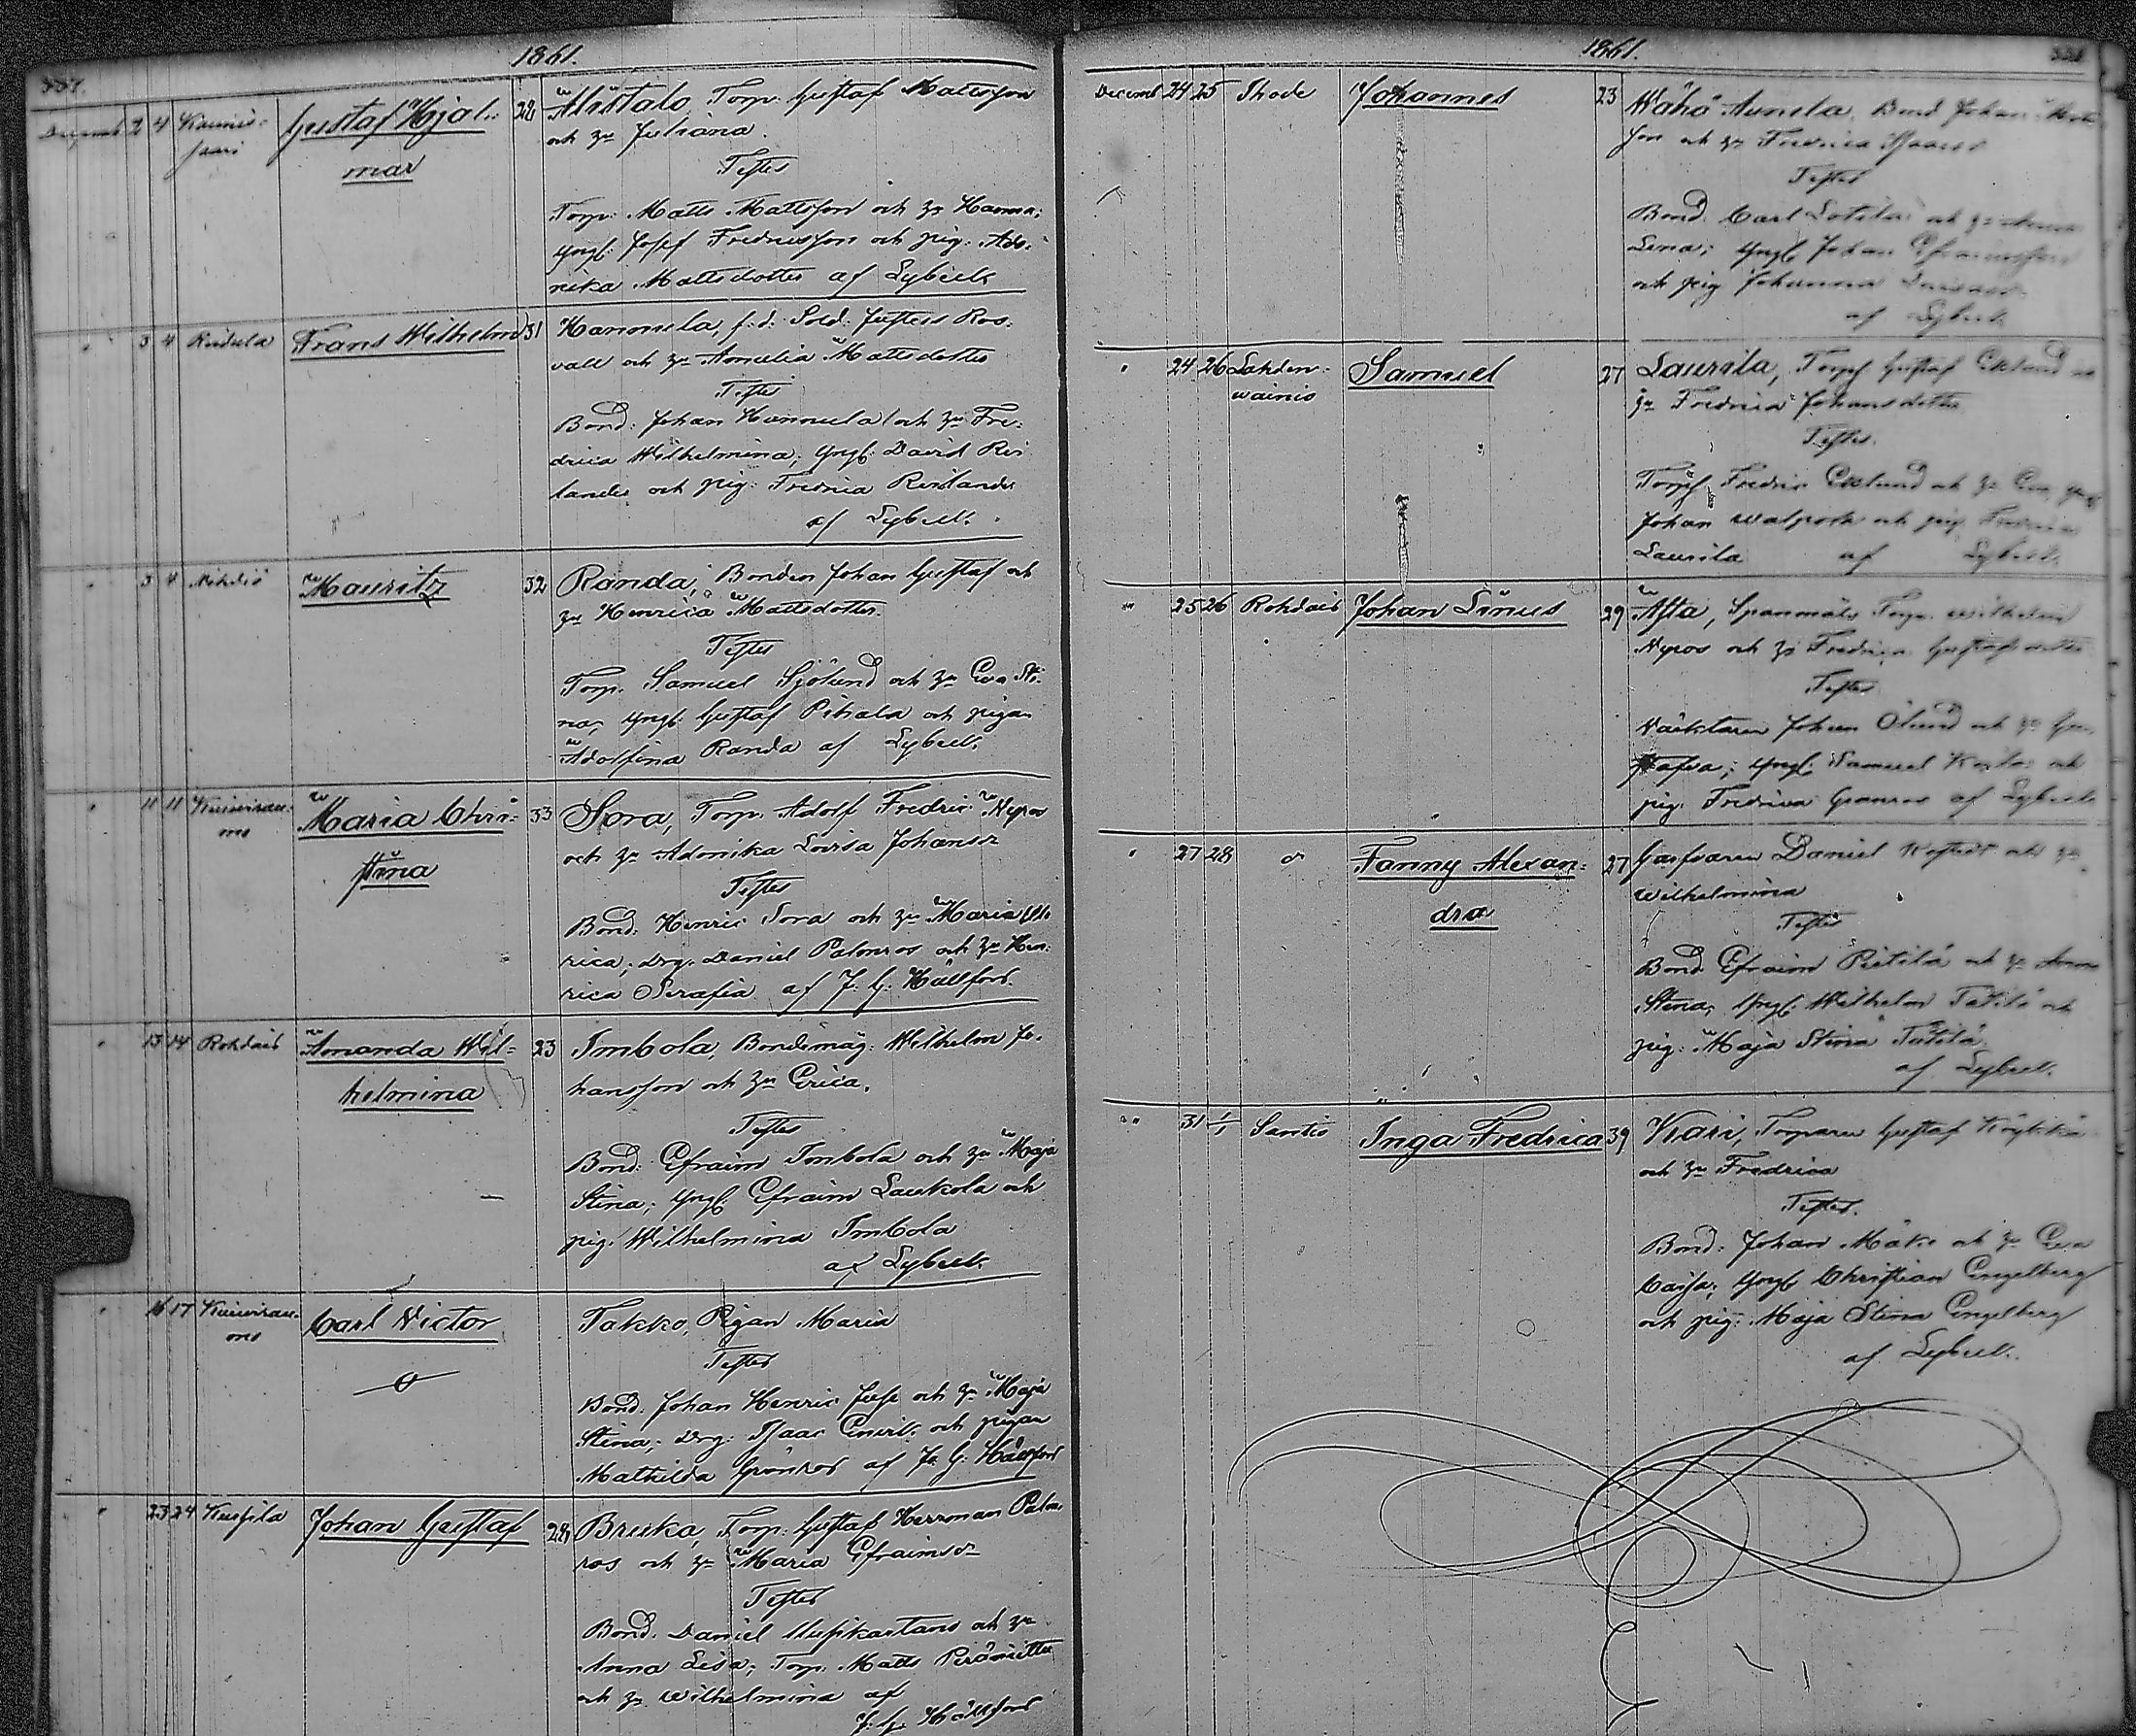 1861.
337.
Decemb 2 4 Kaunis-
saari
Gustaf Hjal-
mar
28
Alistalo, Torp: Gustaf Mattsson
och hu Juliana.
Testes
Torp: Matts Mattsson och hu Hanna;
yngl: Josef Fredricsson och pig: Ado-
rika Mattsdotter af Lybeck
" 3 4
Frans Wilhelm
31
Hannula, f:d: Sold: Justus Ros-
vall och hu Amalia Mattsdotter
Testes
Bond: Johan Hannula och hu Fre-
drica Wilhelmina; yngl: David
och pig: Fredrica
af Lybeck.
" 3 4 Mihdiö
Mauritz
32
Randa, Bonden Johan Gustaf och
hu Henrica Mattsdotter.
Testes
Torp. Samuel Sjölund och hu Eva Sti-
na; yngl: Gustaf Pihala och pigan
Adolfina Randa af Lybeck.
" 11 11
Maria Chri-
stina
33
Sora, Torp. Adolf Fredric Nyros
och hu Adorika Lovisa Johansdr
Testes
Bond: Henric Sora och hu Maria Ul-
rica; drg. Daniel Palmros och hu Hen-
rica Serafia af J. G. Hällfors.
" 13 14 Rohdais
Amanda Wil-
helmina
23
Imbola, Bondemåg: Wilhelm Jo-
hansson och hu Erica.
Testes
Bond: Efraim Imbola och hu Maja
Stina; yngl: Efraim Laukola och
pig: Wilhelmina Imbola
af Lybeck.
" 16 17
Carl Victor
Takko, Pigan Maria
Testes
Bond: Johan Henric Juse och hu Maja
Stina; drg: Isaac och pigan
Mathilda Grönroos af J. G. Hällfors
" 23 24 Kusfila
Johan Gustaf
28
Bruka, Torp: Gustaf Herrman Palm-
ros och hu Maria Efraimsdr
Testes
Bond. Daniel Uusikartano och hu
Anna Lisa; Torp: Matts
och hu Wilhelmina af
J. G. Hällfors
1861.
338
Decemb 24 25 Ihode
Johannes
23
Wähä Aunela, Bond Johan
son och hu Fredrica
Testes
Bond. Carl Sotila och hu Anna
Lena; yngl. Johan Efraimsson
och pig Johanna
af Lybeck.
" 24 26 Lahden-
wainio
Samuel
27
Laurila, Torp Gustaf Eklund och
hu Fredrica Johansdotter
Testes.
Torp Fredric Eklund och hu Eva, yngl
Johan och pig. Fredrica
Laurila af Lybeck.
" 25 26 Rohdais
Johan Linus
29
Afta, Spanmåls Torp. Wilhelm
Nyros och hu Fredrica Gustafsdotter
Testes
Wäktaren Johan Ölund och hu Gu-
stafva; yngl: Samuel och
pig. Fredrica Granroos af Lybeck
" 27 28 do
Fanny Alexan-
dra
27
Garfvaren Daniel och hu
Wilhelmina
Testes
Bond Efraim Pietilä och hu Anna
Stina, yngl. Wilhelm Tätilä och
pig: Maja Stina Tätilä.
af Lybeck.
" 31 1/1 Santio
Inga Fredrica
39
Kari, Torparen Gustaf
och hu Fredrica
Testes.
Bond: Johan Mäki och hu Eva
Caisa; yngl Christian Engelberg
och pig: Maja Stina Engelberg
af Lybeck.